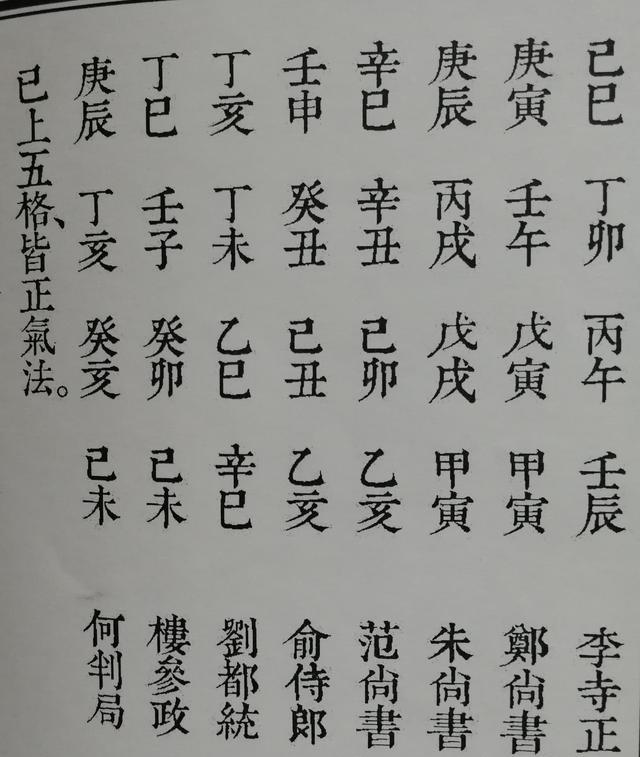 己巳 丁卯 丙午 壬辰 李寺正
庚寅 壬午 戊寅 甲寅 鄭尙書
庚辰 丙戌 戊戌 甲寅 朱尙書
辛巳 辛丑 己卯 乙亥 范尙書
壬申 癸丑 己丑 乙亥 俞侍郎
丁亥 丁未 乙巳 辛巳 劉都統
丁巳 壬子 癸卯 己未 樓參政
庚辰 丁亥 癸亥 己未 何判局
已上五格、皆正氣法。